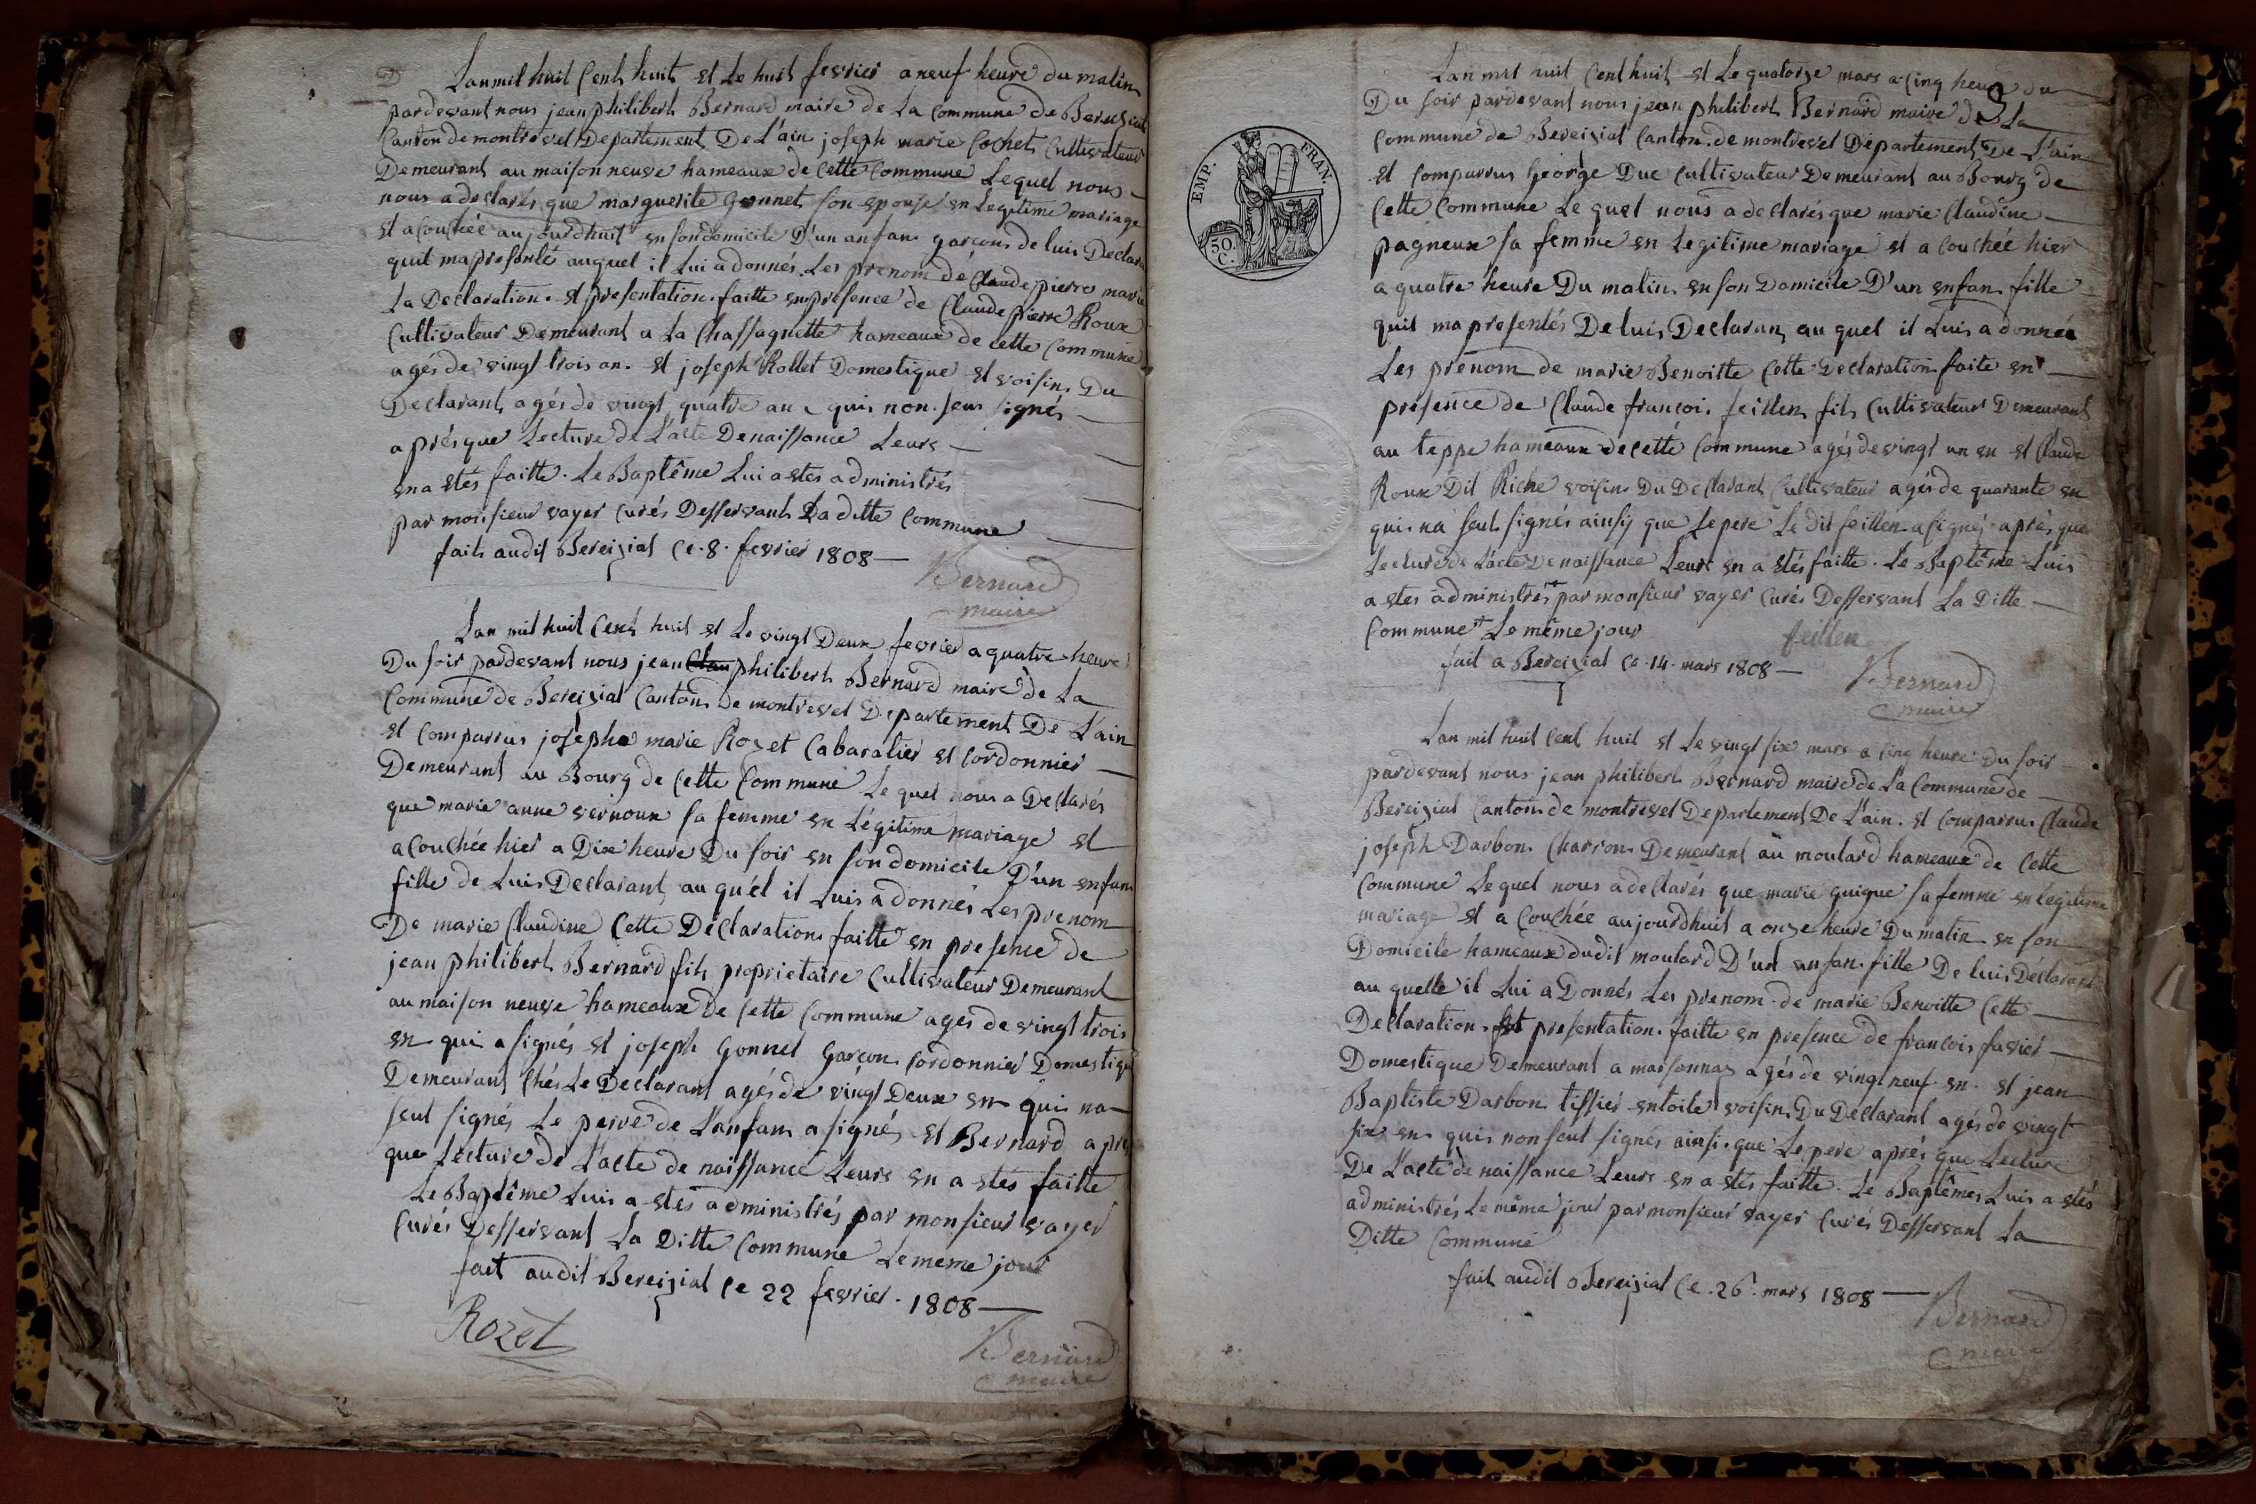 Lan mil huit Cent huit et Le huit fevrier a neuf heure du matin
pardevant nous jean philibert Bernard maire de La Commune de Bereiziat
Canton de montrevel Departement De L'ain joseph marie Cochet Cultivateur
Demeurant au maison neuve hameaux de Cette Commune Lequel nous
nous a declarés que marguerite Gonnet son epouse en Legitime mariage
et acouchée aujourdhuit en son domicile D'un anfan garçon de luis Declara
quil ma presentés auquel il Lui a donnés Les prenom de Claude pierre marie
La Declaration et presentation faitte en presence de Claude pierre Roux
Cultivateur Demeurant a La Chassagnette hameaux de Cette Commune
agés de vingt trois an et joseph Rollet Domestique et voisin Du
Declarant agés de vingt quatre an quis non seus signés
aprés que Lecture de L'acte De naissance Leurs
en a stés faitte. Le Baptême Lui a stes administrés
par monsieur vayer Curés Desservant La ditte Commune
fait audit Bereiziat Ce 8 fevrier 1808
Bernard
maire
Lan mil huit Cent huit et Le vingt Deux fevrier a quatre heure
Du soir pardevant nous jean Clau philibert Bernard maire de La
Commune de Bereiziat Canton De montrevel Departement De L'ain
et Comparrus josepha marie Rozet Cabaratier et Cordonnier
Demeurant au Bourg de Cette Commune Le quel nous a Declarés
que marie anne vernoux sa femme en Légitime mariage et
acouchée hier a Dix heure Du soir en son domicile D'un enfan
fille de Luis Declarant au quél il Luis a donnés Les prenom
De marie Claudine Cette Déclaration faitte en presence de
jean philibert Bernard fils proprietaire Cultivateur Demeurant
au maison neuve hameaux de Cette Commune agés de vingt trois
en qui a signés et joseph Gonnet Garçon Cordonnier Domestiqu
Demeurant Chés Le Declarant agés de vingt Deux en qui na
seut signés Le perre de L'anfan a signés et Bernard a prè
que Lecture de L'acte de naissance Leurs en a stés faitte
Le Baptême Luis a stés administrés par monsieur vayer
Curés Desservant La Ditte Commune Le meme jour
fait audit Bereiziat Ce 22 fevrier 1808
Rozet
Bernard
maire
EMP. FRAN.
50.
C.
Lan mil huit Cent huit et Le quatorze mars a Cinq heure du
Du soir pardevant nous jean philibert Bernard maire de La
Commune de Bereiziat Canton de montrevel Departement De L'ain
et Comparrus George Duc Cultivateur Demeurant au Bourg de
Cette Commune Le quel nous a declarés que marie Claudine
pagneux sa femme en Legitime mariage et a couchée hier
a quatre heure Du matin en son Domicile D'un enfan fille
quil ma presentés De luis Declaran au quel il Luis a donnés
Les prenom de marie Benoitte Cette Declaration faite en
presence de Claude françois feillen fils Cultivateur Demeurant
au teppe hameaux de Cette Commune agés de vingt un en et Claude
Roux Dit Riche voisin Du Declarant Cultivateur agés de quarante en
qui na seut signés ainsij que Le pere Le dit feillen a signés après que
Lecture de L'acte De naissance Leurs en a stés faitte. Le Baptême Luis
a stes administrés par monsieur vayer Curés Desservant La Ditte
Commune Le même jour
feillen
fait a Bereiziat Ce 14 mars 1808
Bernard
maire
Lan mil huit Cent huit et Le vingt six mars a Cinq heure Du soir
pardevant nous jean philibert Bernard maire de La Commune de
Bereiziat Canton de montrevel Departement De L'ain. et Comparru Claude
joseph Darbon Charron Demeurant au moulard hameaux de Cette
Commune Le quel nous a declarés que marie guigue sa femme en Legitime
mariage et a Couchée aujourdhuit a onze heure Du matin en son
Domicile hameaux dudit moulard D'un enfan fille De luis Déclarant
au quelle il Lui a Donnés Les prenom de marie Benoitte Cette
Declaration et presentation faitte en presence de françois favier
Domestique Demeurant a marsonnas agés de vingt neuf en et jean
Baptiste Darbon tissier en toile voisin Du Declarant agés de vingt
six en quis non seut signés ainsi que Le pere aprés que Lecture
De L'acte de naissance Leurs en a stés faitte. Le Baptêmes Luis a stés
administrés Le même jour par monsieur vayer Curés Desservant La
Ditte Commune
fait audit Bereiziat Ce 26 mars 1808
Bernard
maire